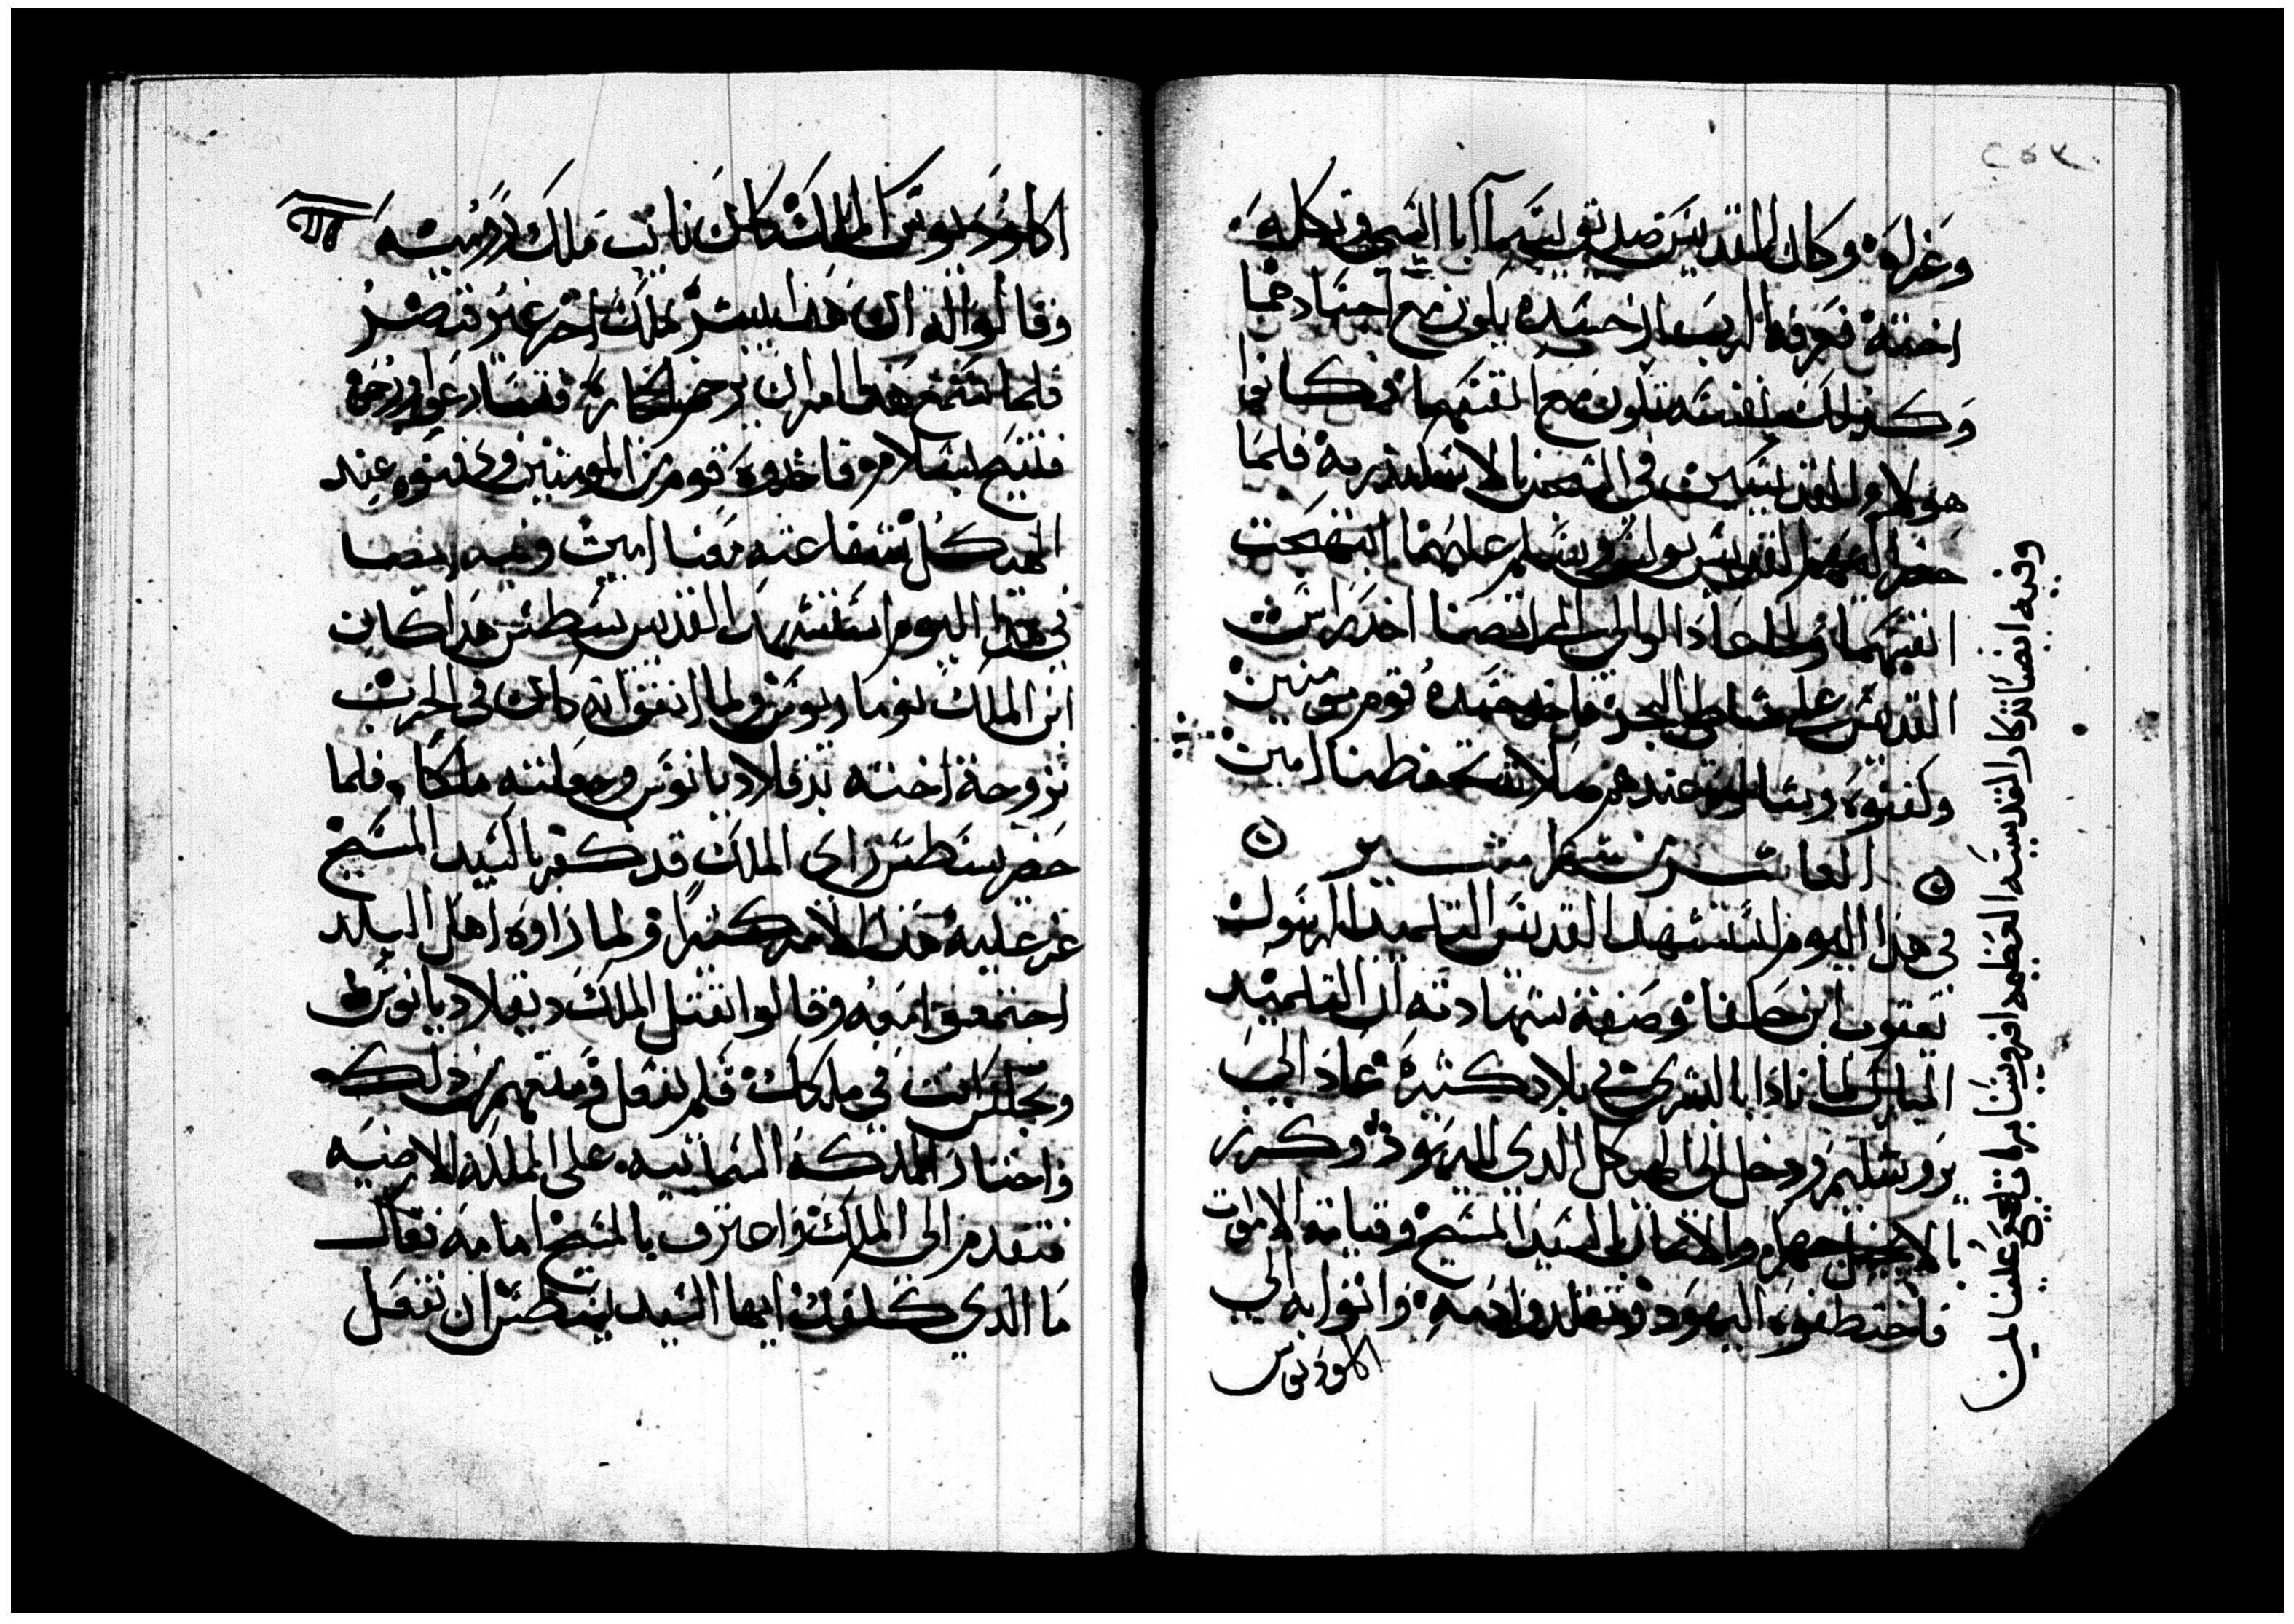 وغزله وكان القديس صديق يسما ابا ايسي وتكله
اخته فعرفه الرب ان جسده يكون مع اجسادهما
وكذلك نفسه تكون مع انفسهما وكانوا
هولاء القديسين في السجن بالاسكندريه فلما
حضر اليهم القديس بولس وسلم عليهما ابتهجت
انفسهما ولما عاد الوالي الي انصنا اخذ راس
القديس علي شاطي البحر فاخذ جسده قوم مومنين
وكفنوه وبشالوه عندهم صلاته تحفظنا امين
العاشر من شهر امشير
في هذا اليوم استشهد القديس التلميد الرسول
يعقوب ابن حلفا وصفة شهادته ان التلميد
المبارك لما نادا بالبشري في بلاد كثيره عاد الي
يروشليم ودخل الي الهيكل الدي لليهود وكرز
بالانجيل جهرا وبالايمان بالسيد المسيح وقيامة الاموات
فاختطفوه اليهود وتقلدوا دمه واتوا به الي
اكلوديوس
وفيه ايضا تذكار القديسه العظيمه افروسينا بركاتها تكون علينا امين
اكلوديوس الملك كان نايب ملك رومية
وقالوا له ان هدا يبشر بملك اخر غير قيصر
فلما سمع هدا امر ان يرجم بالحجاره فتسارعوا ورجموه
فتنيح بسلام فاخدوه قوم من المومنين ودفنوه عند
الهيكل شفاعته معنا امين وفيه ايضا
في هذا اليوم استشهد القديس يسطس هدا كان
ابن الملك نوماريوس ولما اتفق انه كان في الحرب
تزوجة اخته بدقلاديانوس وجعلته ملكا وفلما
حضر يسطس راى الملك قد كفر بالسيد المسيح
عز عليه هذا الامر كثيرا ولما راوه اهل البلد
اجتمعوا معه وقالوا نقتل الملك ديقلاديانوس
ونجلس انت في ملكك فلم يفعل ومنعهم من ذلك
واختار المملكة السمائيه على المملكة الارضيه
فتقدم الى الملك واعترف بالمسيح امامه فقال
ما الدي كلفك ايها السيد يسطس ان تفعل